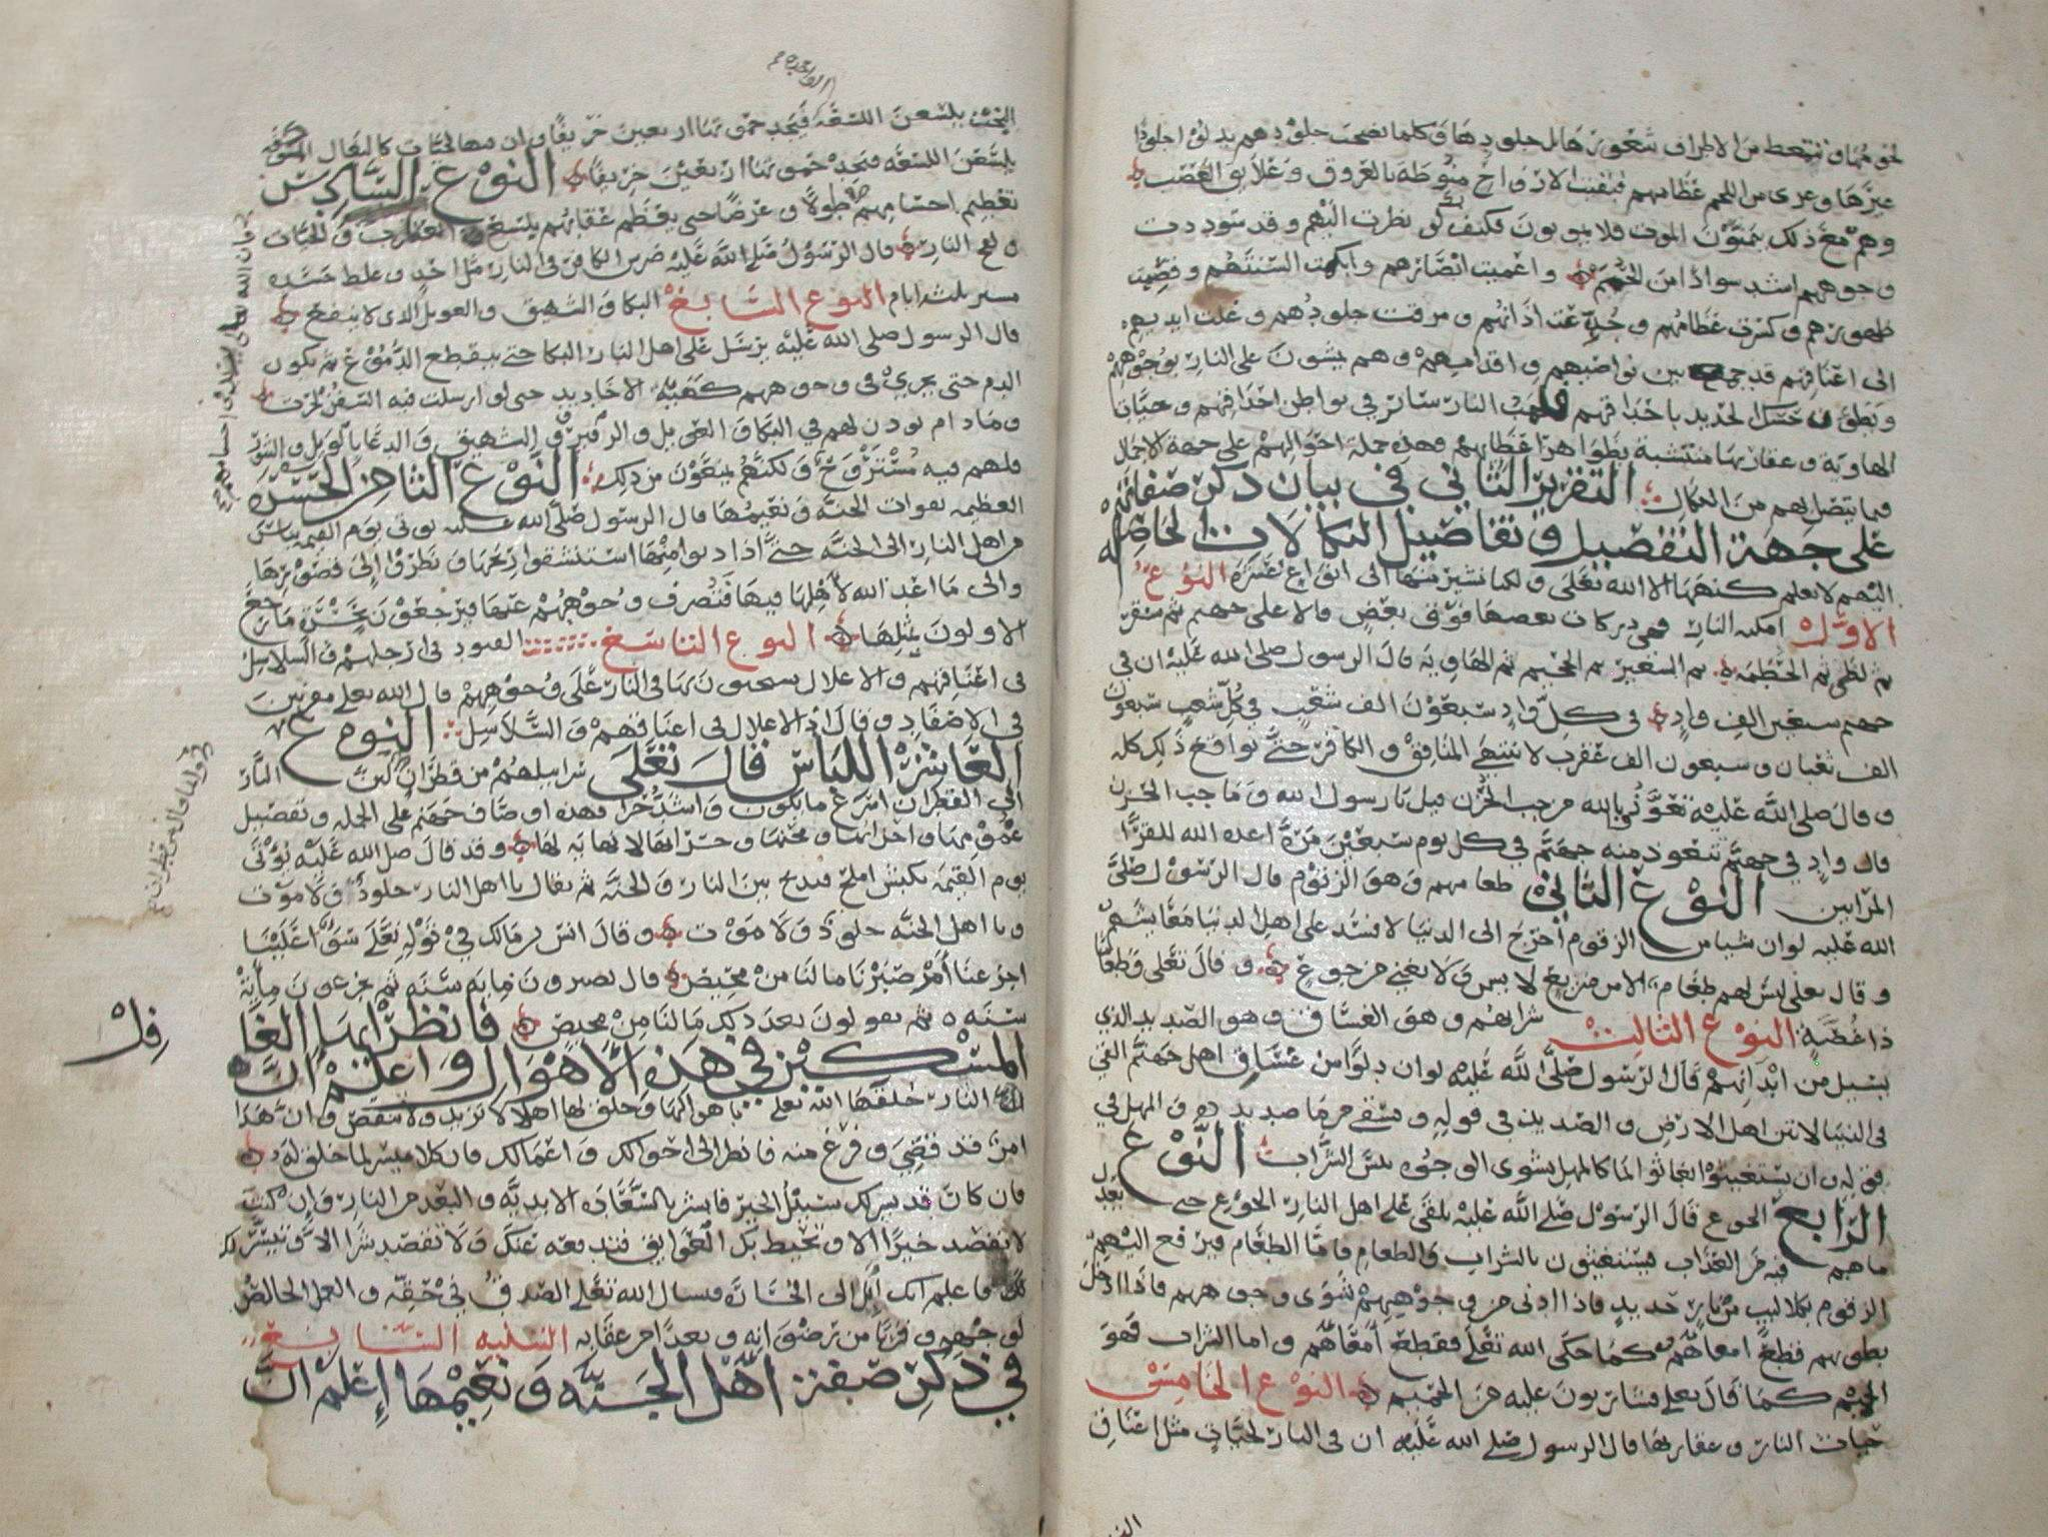 لحومها فتمعط من الاطراف شعورها بل جلودها وكلما نضجت جلودهم بدلوا جلودا
غيرها وعري من اللحم عظامهم فبقيت الارواح منوطة بالعروق وعلايق العصب
وهم مع ذلك يتمنون الموت فلا يموتون فكيف لو نظرت اليهم وقد سودت
وجوههم اشد سوادا من الحمم واعميت ابصارهم وابكمت السنتهم وقصمت
ظهورهم وكسرت عظامهم وجدعت اذانهم ومزقت جلودهم وغلت ايديهم
الى اعناقهم قد جمع بين نواصيهم واقدامهم وهم يمشون على النار بوجوههم
ويطؤن حسك الحديد باحداقهم فلهب النار سار في بواطن اجزائهم وحيات
الهاوية وعقاربها متشبثة بظواهر اعضائهم فهذه جملة احوالهم على جهة الاجمال
فيما يتصل بهم من النكال التقرير الثاني في بيان ذكر صفاتهم
على جهة التفصيل وتفاصيل النكالات الخاصله
اليهم لا يعلم كنهها الا الله تعالى ولكنا نشير منها الى انواع عشرة النوع
الاول امكنه النار فهي دركات بعضها فوق بعض فالاعلى جهنم ثم سقر
ثم لظى ثم الحطمه ثم السعير ثم الجحيم ثم الهاوية قال الرسول صلى الله عليه ان في
جهنم سبعين الف واد في كل واد سبعون الف شعب في كل شعب سبعون
الف ثعبان وسبعون الف عقرب لا ينتهي المنافق والكافر حتى يواقع ذلك كله
وقال صلى الله عليه تعوذوا بالله من جب الحزن قيل يا رسول الله وما جب الحزن
قال واد في جهنم تتعوذ منه جهنم في كل يوم سبعين مرة اعده الله للقراء
المرايين النوع الثاني طعامهم وهو الزقوم قال الرسول صلى
الله عليه لو ان شيا من الزقوم اخرج الى الدنيا لافسد على اهل الدنيا معايشهم
وقال تعالى ليس لهم طعام الا من ضريع لا يسمن ولا يغني من جوع وقال تعالى وطعاما
ذا غصة النوع الثالث شرابهم وهو الغساق وهو الصديد الذي
يسيل من ابدانهم قال الرسول صلى الله عليه لو ان دلوا من غساق اهل جهنم القي
في الدنيا لانتن اهل الارض والصديد في قوله ويسقى من ما صديد والمهل في
قوله وان يستغيثوا يغاثوا بما كالمهل يشوى الوجوه بئس الشراب النوع
الرابع الجوع قال الرسول صلى الله عليه يلقى على اهل النار الجوع حتى يعدل
ما هم فيه من العذاب فيستغيثون بالشراب والطعام فاما الطعام فيرفع اليهم
الزقوم بكلاليب من نار حديد فاذا ادنى من وجوههم شوى وجوههم فاذا ادخل
بطونهم قطع امعاهم كما حكى الله تعالى فقطع امعاهم واما الشراب فهو
الحميم كما قال تعالى فشاربون عليه من الحميم النوع الخامس
حيات النار وعقاربها قال الرسول صلى الله عليه ان في النار لحيات مثل اعناق
البخت يلسعن اللسعه فيجد حموتها اربعين خريفا وان فيها لحيات كالبغال الموكفه
يلسعن اللسعه فيجد حموتها اربعين خريفا النوع السادس
تعظيم اجسامهم طولا وعرضا حتى يعظم عقابهم بلسع العقارب والحيات
ولفح النار قال الرسول صلى الله عليه ضرس الكافر في النار مثل احد وغلظ جسده
مسير ثلثة ايام النوع السابع البكا والشهيق والعويل الذي لا ينفع
قال الرسول صلى الله عليه يرسل على اهل النار البكا حتى ينقطع الدموع ثم يكون
الدم حتى يجري في وجوههم كهيئة الاخاديد حتى لو ارسلت فيه السفن لجرت
وما دام يوذن لهم في البكا والعويل والزفير والشهيق والدعا بالويل والثبور
فلهم فيه مستروح ولكنهم يمنعون من ذلك النوع الثامن الحسره
العظيمه بفوات الجنة ونعيمها قال الرسول صلى الله عليه يوتى يوم القيمه بناس
من اهل النار الى الجنه حتى اذا دنوا منها استنشقوا ريحها ونظروا الى قصورها
والى ما اعد الله لاهلها فيها فتصرف وجوههم عنها فيرجعون بحسرة ما رجع
الاولون بمثلها النوع التاسع القيود في ارجلهم والسلاسل
في اعناقهم والاغلال يسحبون بها في النار على وجوههم قال الله تعالى مقرنين
في الاصفاد وقال اذ الاغلال في اعناقهم والسلاسل النوع
العاشر اللباس قال تعالى سرابيلهم من قطران لان النار
الى القطران اسرع ما يكون واشد حرا فهذه اوصاف جهنم على الجمله وتفصيل
غمومها واحزانها ومحنها وحسراتها لا نهاية لها وقد قال صلى الله عليه يؤتى
يوم القيمه بكبش املح فيذبح بين النار والجنة ثم يقال يا اهل النار خلود ولا موت
ويا اهل الجنه خلود ولا موت وقال انس بن مالك في قوله تعالى سوا علينا
اجزعنا ام صبرنا ما لنا من محيص قال يصبرون ماية سنه ثم يجزعون ماية
سنه ثم يقولون بعد ذلك ما لنا من محيص فانظر ايها الغافل
المسكين في هذه الاهوال واعلم ان
النار خلقها الله تعالى باهوالها وخلق لها اهلا لا تزيد ولا تنقص وان هذا
امر قد قضي وفرغ منه فانظر الى احوالك واعمالك فان كلا ميسر لما خلق له
فان كان قد يسر لك سبيل الخير فابشر بالسعاده الابدية والبعد من النار وان كنت
لا تقصد خيرا الا وتحيط بك العوايق فتدفعه عنك ولا تقصد شرا الا وتيسر لك
فاعلم انك ايل الى الخسارة فنسال الله تعالى الصدق في حقه والعمل الخالص
لوجهه وقربا من رضوانه وبعدا من عقابه التنبيه السابع
في ذكر صفة اهل الجنه ونعيمها إعلم ان